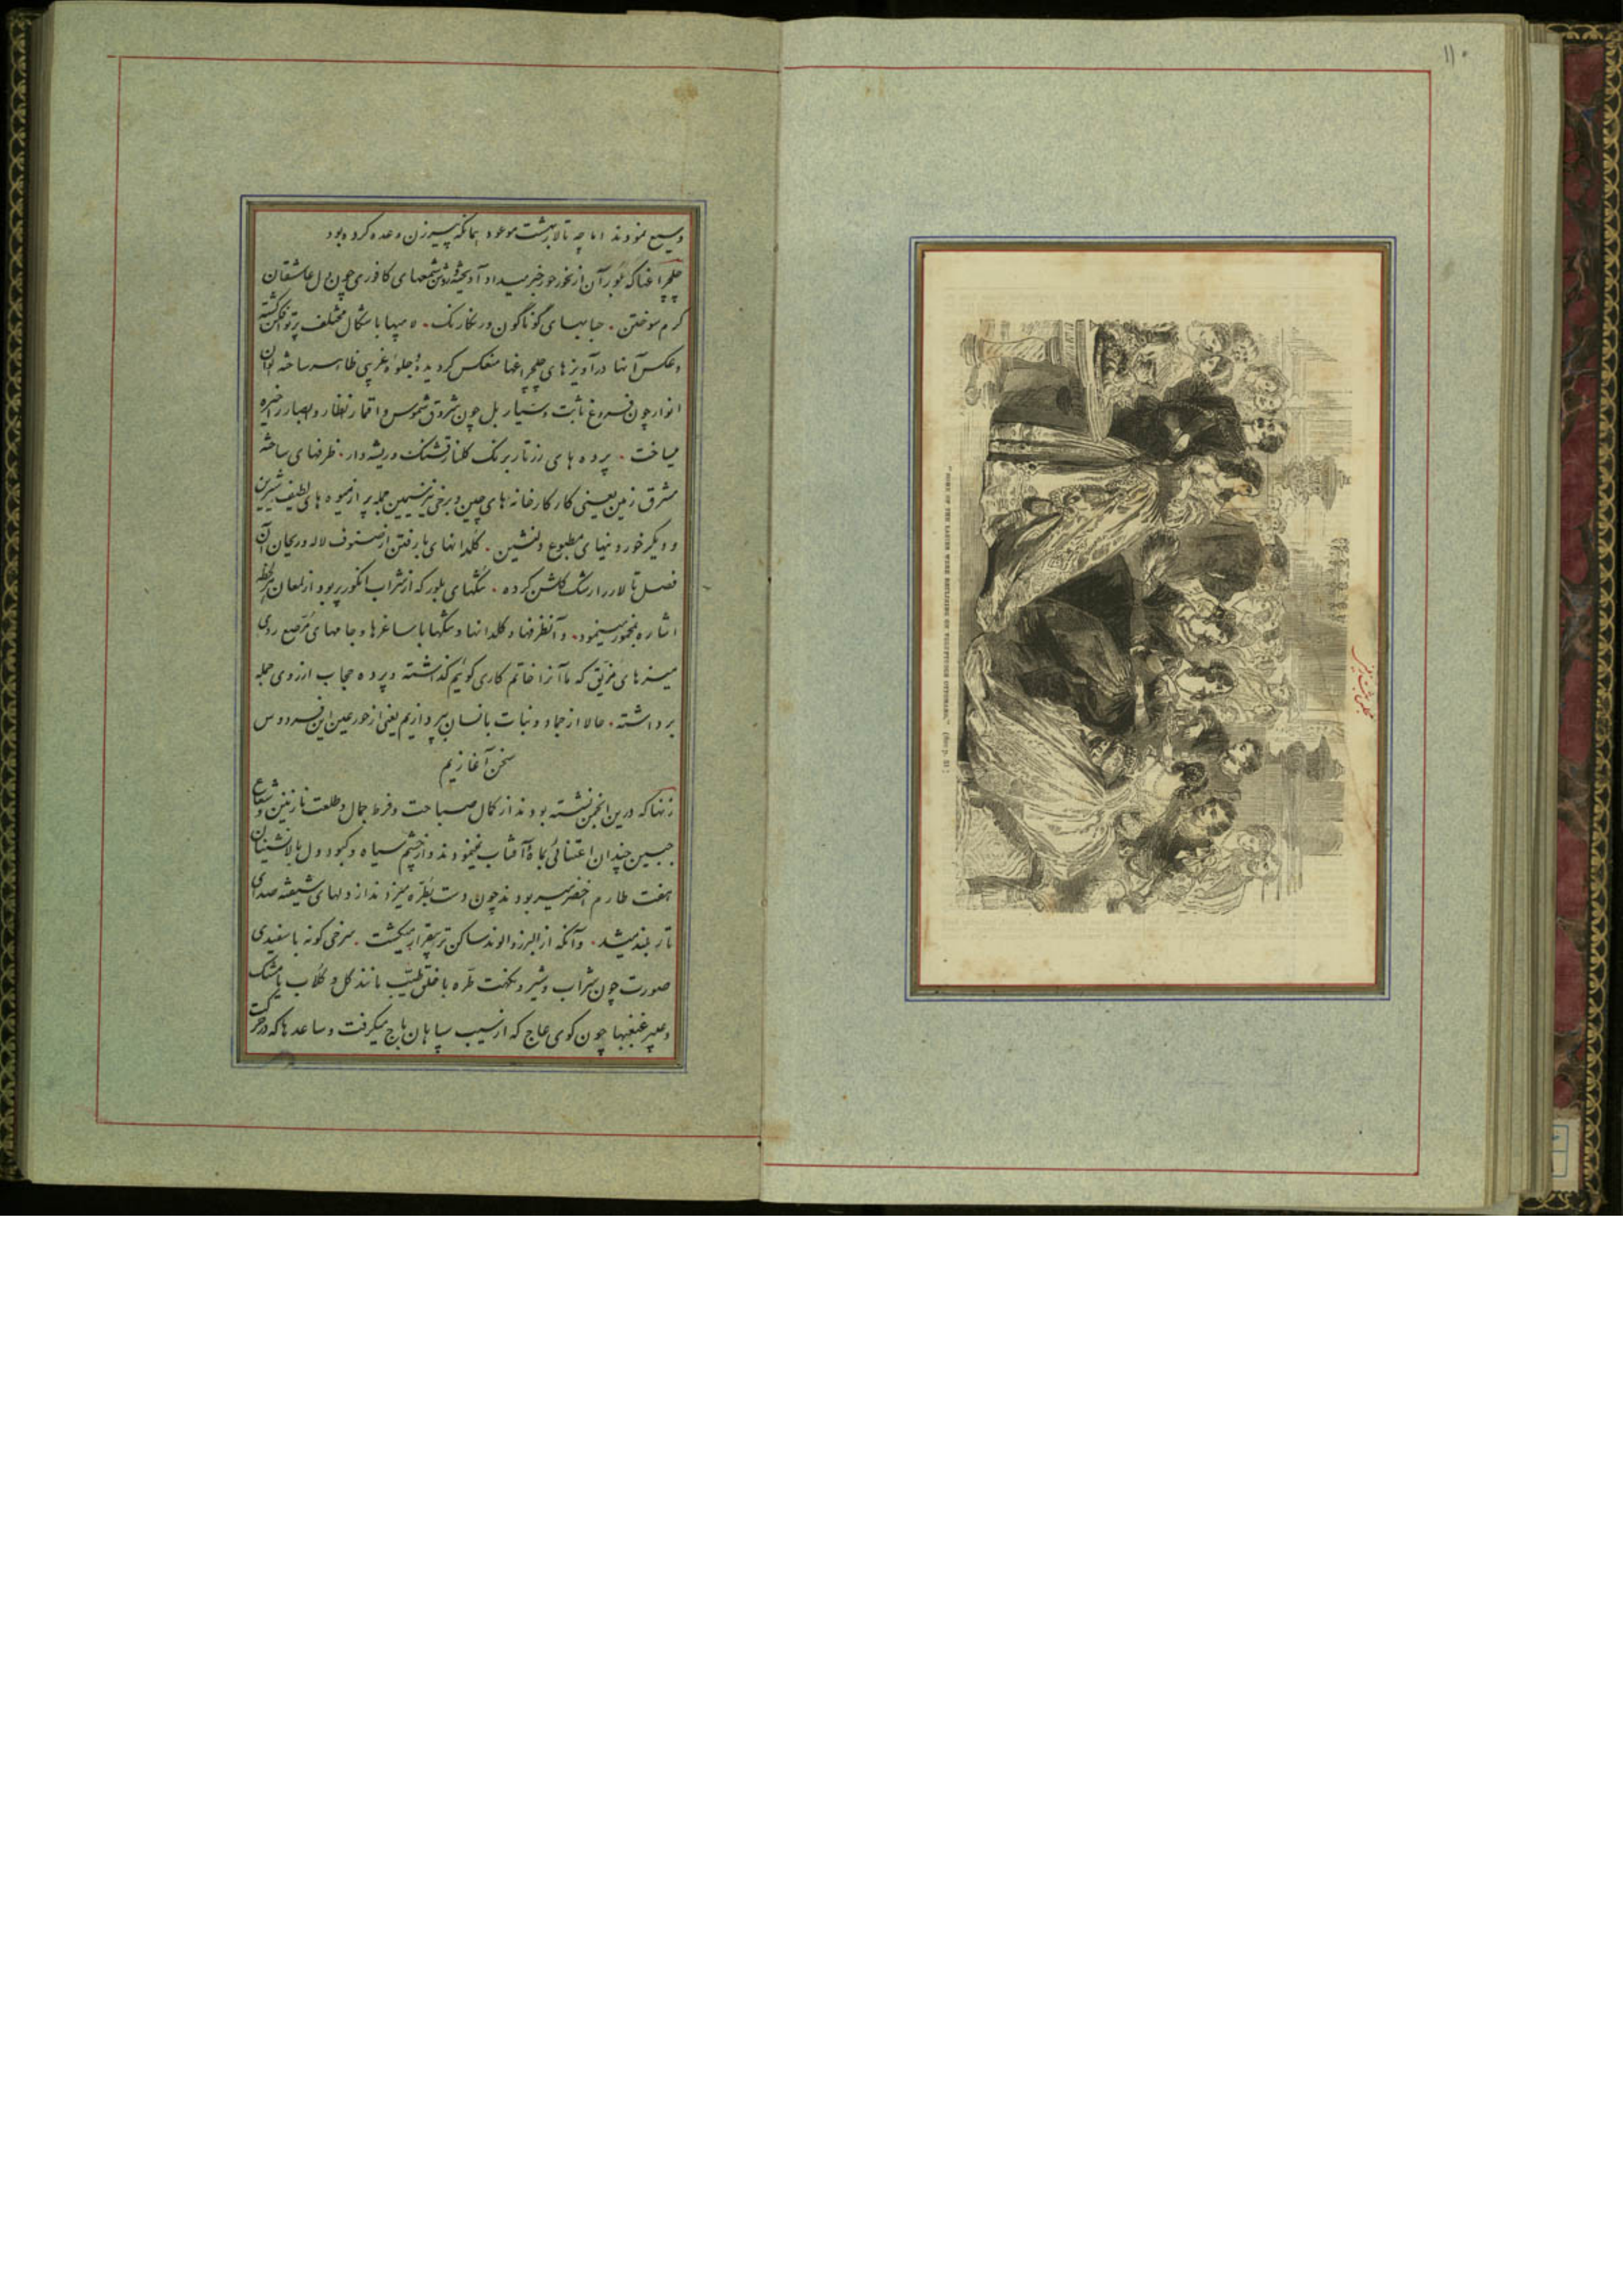 ۱۱۰
"SOME OF THE LADIES WERE RECLINING ON VOLUPTUOUS OTTOMANS." (See p. 13)
وسیع نمودند اما چه تالار بهشت موعود همانکه پیرزن وعده کرده بود
چلچراغها که بلور آن از نحور حور خبر میداد آویخته و روشن شمعهای کافوری چون دل عاشقان
گرم سوختن . حبابهای گوناگون و رنگارنگ . لامپها باشکال مختلف پرتوافکن گشته
وعکس آنها در آویزهای چلچراغها منعکس گردیده جلوه غریبی ظاهر ساخته
انوار چون فروغ ثابت و سیار بل چون شروق شموس و اقمار نظار و ابصار را خیره
میساخت . پرده های زرتار برنگ گلنار قشنگ و ریشه دار . ظرفهای ساخته
مشرق زمین یعنی کار کارخانه های چین و برخی نیز سیمین جمله پر از میوه های لطیف شیرین
و دیگر خوردنیهای مطبوع دلنشین . گلدانهای بارفتن از صنوف لاله و ریحان آن
فصل تالار را رشک گلشن کرده . تنگهای بلور که از شراب انگور پر بود از لمعان هر لحظه
اشاره بمخمور مینمود . و آنظرفها و گلدانها و تنگها با ساغرها و جامهای مرصع روی
میزهای مزیق که ما آنرا خاتم کاری گوئیم گذاشته و پرده حجاب از روی جمله
برداشته . حالا از جماد و نبات بانسان پردازیم یعنی از حور عین این فردوس
سخن آغازیم
زنها که درین انجمن نشسته بودند از کمال صباحت و فرط جمال و طلعت نازنین و شعاع
جبین چندان اعتنائی بماه و آفتاب نمینمودند و از چشم سیاه و کبود دل بالانشینان
هفت طارم اخضر میربودند چون دست بطره میزدند از دلهای شیفته صدای
تار بلند میشد . و آنکه از البرز و الوند ساکن تر بیقرار میگشت . سرخی گونه با سفیدی
صورت چون شراب و شیر و نکهت طره با خلق طیب مانند گل و گلاب یا مشک
و عبیر غبغبها چون گوی عاج که از سیب سپاهان باج میگرفت و ساعدها که در حرکت